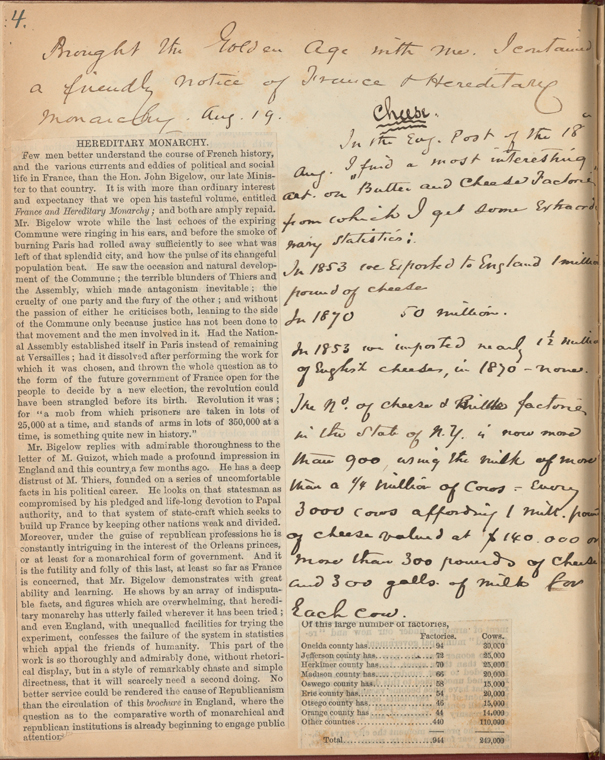 4.
Brought the Golden Age with me. I contained
a friendly notice of France & Hereditary
Monarchy. Aug. 19.
HEREDITARY MONARCHY.
Few men better understand the course of French history,
and the various currents and eddies of political and social
life in France, than the Hon. John Bigelow, our late Minis-
ter to that country. It is with more than ordinary interest
and expectation that we open his tasteful volume, entitled
France and Hereditary Monarchy; and both are amply repaid.
Mr. Bigelow wrote while the last echoes of the expiring
Commune were ringing in his ears, and before the smoke of
burning Paris had rolled away sufficiently to see what was
left of that splendid city, and how the pulse of its changeful
population beat. He saw the occasion and natural develop-
ment of the Commune; the terrible blunders of Thiers and
the Assembly, which made antagonism inevitable; the
cruelty of one party and the fury of the other; and without
the passion of either he criticises both, leaning to the side
of the Commune only because justice has not been done to
that movement and the men involved in it. Had the Nation-
al Assembly established itself in Paris instead of remaining
at Versailles; had it dissolved after performing the work for
which it was chosen, and thrown the whole question as to
the form of the future government of France open for the
people to decide by a new election, the revolution could
have been strangled before its birth. Revolution it was;
for "a mob from which prisoners are taken in lots of
25,000 at a time, and stands of arms in lots of 350,000 at a
time, is something quite new in history."
Mr. Bigelow replies with admirable thoroughness to the
letter of M. Guizot, which made a profound impression in
England and this country a few months ago. He has a deep
distrust of M. Thiers, founded on a series of uncomfortable
facts in his political career. He looks on that statesman as
compromised by his pledged and life-long devotion to Papal
authority, and to that system of state-craft which seeks to
build up France by keeping other nations weak and divided.
Moreover, under the guise of republican professions he is
constantly intriguing in the interest of the Orleans princes,
or at least for a monarchical form of government. And it
is the futility and folly of this last, at least so far as France
is concerned, that Mr. Bigelow demonstrates with great
ability and learning. He shows by an array of indisputa-
ble facts, and figures which are overwhelming, that heredi-
tary monarchy has utterly failed wherever it has been tried;
and even England, with unequalled facilities for trying the
experiment, confesses the failure of the system in statistics
which appal the friends of humanity. This part of the
work is so thoroughly and admirably done, without rhetori-
cal display, but in a style of remarkably chaste and simple
directness, that it will scarcely need a second doing. No
better service could be rendered the cause of Republicanism
than the circulation of this brochure in England, where the
question as to the comparative worth of monarchical and
republican institutions is already beginning to engage public
attention.
Cheese.
In the Eug. Post of the 18"
Aug. I find a most interesting
art. on Butter and Cheese Factories
from which I get some Extraordi
nary Statistics:
In 1853 we Exported to England 1 million
pound of cheese
In 1870 50 million.
In 1853 we imported nearly 1½ million
of English cheeses, in 1870 - none.
The No. of cheese & factories
in the State of N.Y. is now more
than 900, using the milk of more
than a 1/4 million of Cows - Every
3000 cows affording 1 mill. pound
of cheese valued at $140.000 or
more than 300 pounds of cheese
and 300 galls. of milk for
Each cow.
Of this large number of factories,
Factories. Cows.
Oneida county has 94 30,000
Jefferson county has 73 25,000
Herkimer county has 70 25,000
Madison county has 66 20,000
Oswego county has 58 15,000
Erie county has 54 20,000
Otsego county has 46 15,000
Orange county has 44 14,000
Other counties 440 110,000
Total 944 249,000